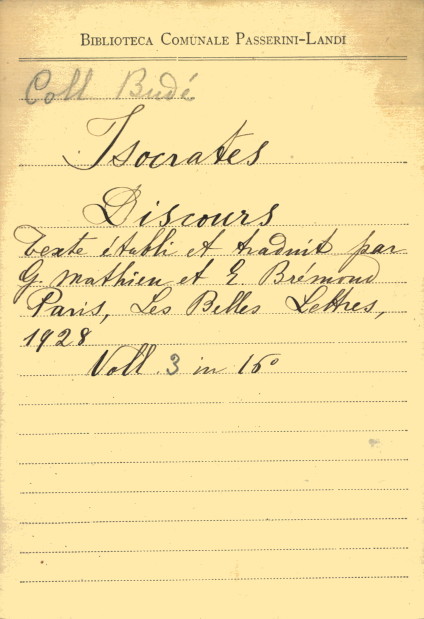 BIBLIOTECA COMUNALE PASSERINI-LANDI
Coll Budé
Isocrates
Discours
Texte établi et traduit par
G Mathieu et E. Brémond
Paris, Les Belles Lettres,
1928
Voll. 3 in 16°